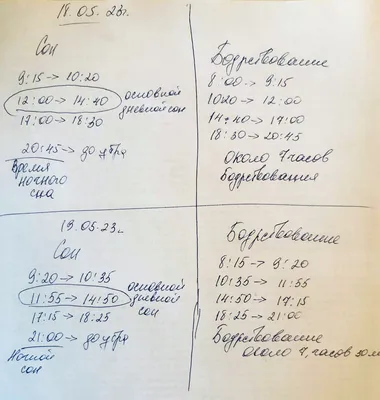 18.05.23г.
Сон
9:15 → 10:20
12:00 → 14:40 основной дневной сон
17:00 → 18:30
20:45 → до утра
Время
ночного
сна
Бодрствование
8:00 → 9:15
1020 → 12:00
14:40 → 17:00
18:30 → 20:45
около 7 часов
Бодрствования
19.05.23г.
Сон
9:20 → 10:35
11:55 → 14:50 основной дневной сон
17:15 → 18:25
21:00 → до утра
Ночной
сон
Бодрствование
8:15 → 9:20
10:35 → 11:55
14:50 → 17:15
18:25 → 21:00
Бодрствование
около 7, часов